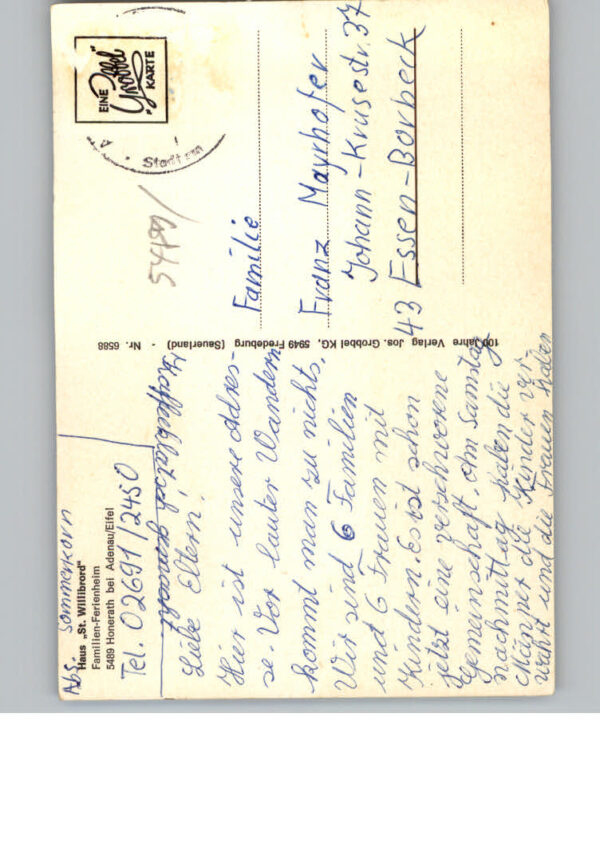 Abs. Sommerkorn
Haus „St. Willibrord"
Familien-Ferienheim
5489 Honerath bei Adenau/Eifel
Tel. 02691/2450
Liebe Eltern!
Hier ist unsere Adres-
se. Vor lauter Wandern
kommt man zu nichts.
Wir sind 6 Familien
und 6 Frauen mit
Kindern. Es ist schon
jetzt eine verschworene
Gemeinschaft. Am Samstag
nachmittag haben die
Männer die Kinder ver-
wahrt und die Frauen haben
100 Jahre Verlag Jos. Grobbel KG, 5949 Fredeburg (Sauerland) - Nr. 6588
EINE
Grobbel
KARTE
Stadt
Familie
Franz Mayrhofer
Johann-Krusestr. 37
43 Essen-Borbeck